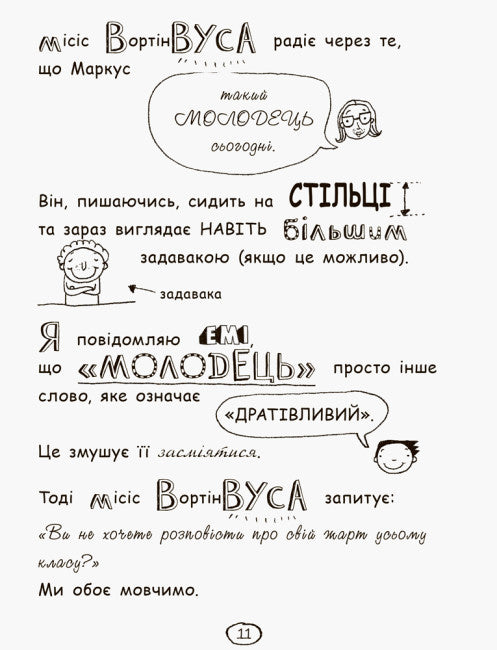 місіс ВортінВУСА радіє через те,
що Маркус
такий
МОЛОДЕЦЬ
сьогодні.
Він, пишаючись, сидить на СТІЛЬЦІ
та зараз виглядає НАВІТЬ більшим
задавакою (якщо це можливо).
задавака
Я повідомляю ЕМІ,
що «МОЛОДЕЦЬ» просто інше
слово, яке означає
«ДРАТІВЛИВИЙ».
Це змушує її засміятися.
Тоді місіс ВортінВУСА запитує:
«Ви не хочете розповісти про свій жарт усьому
класу?»
Ми обоє мовчимо.
11